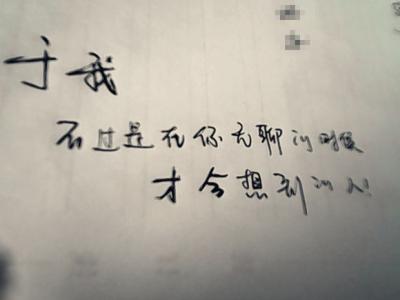 于我
不过是在你无聊的时候
才会想到的人!